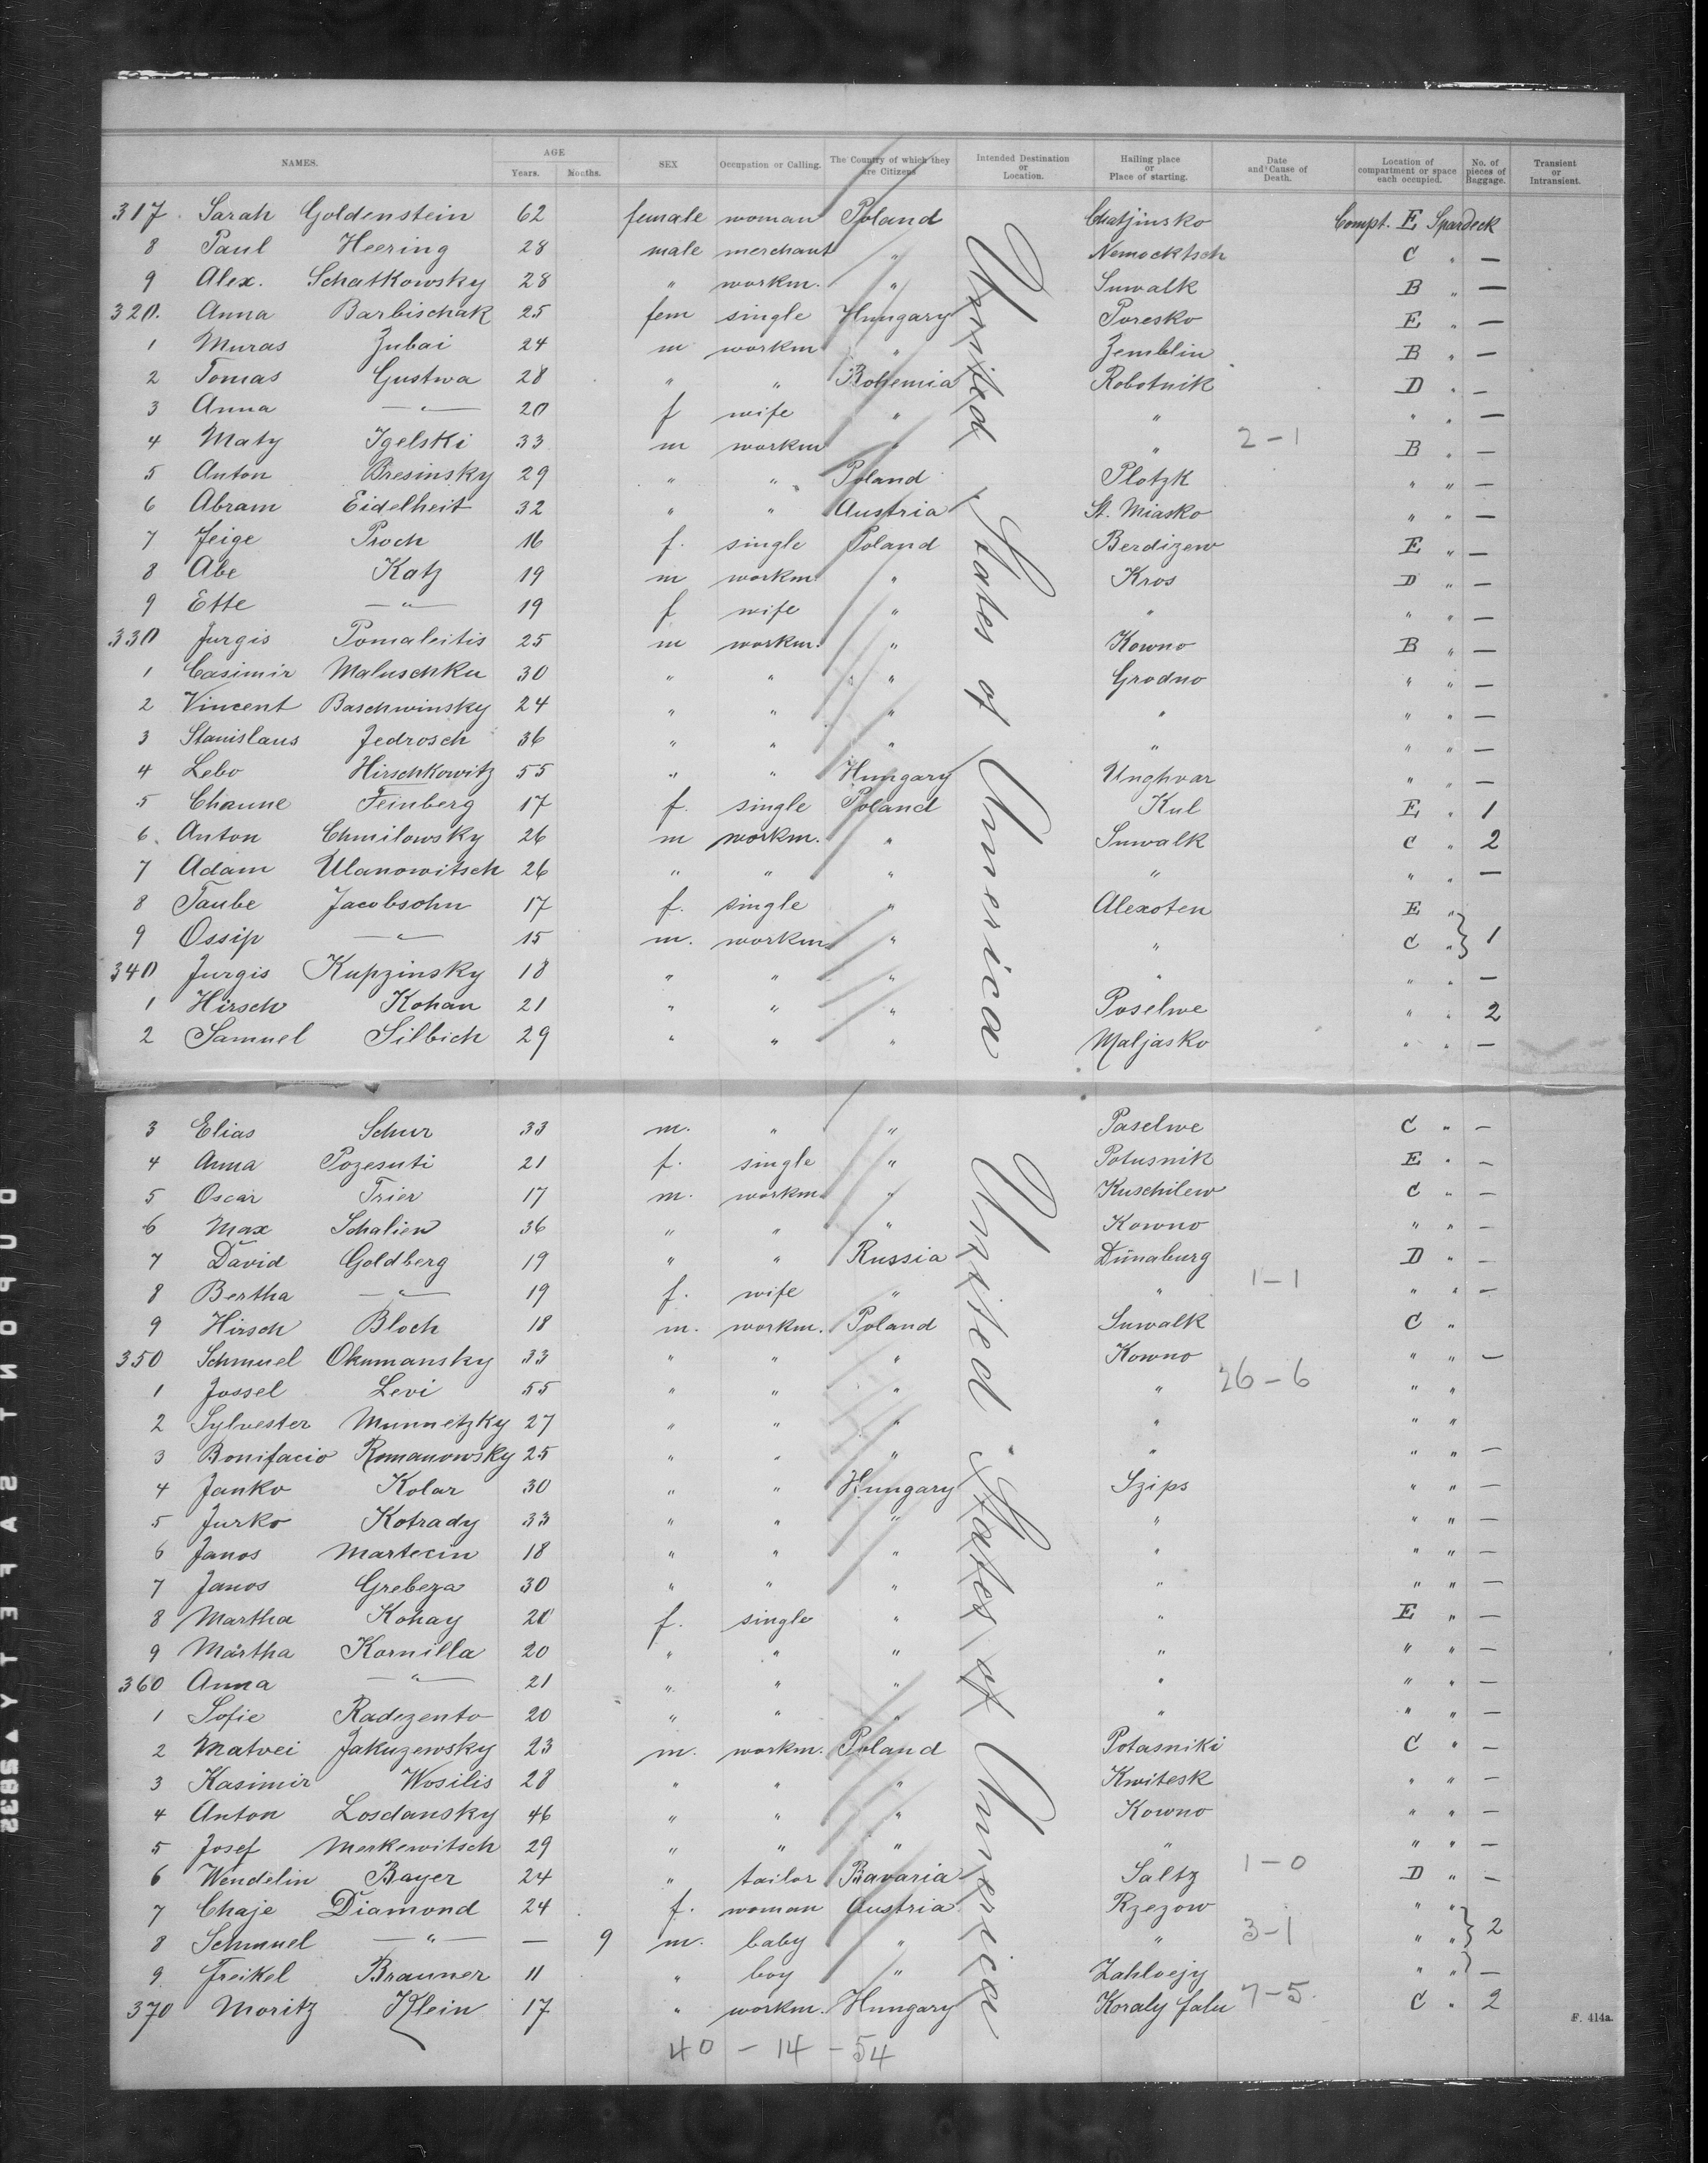 NAMES. AGE Years. Months. SEX Occupation or Calling. The Country of which they are Citizens Intended Destination or Location. Hailing place or Place of starting. Date and Cause of Death. Location of compartment or space each occupied. No. of pieces of Baggage. Transient or Intransient.
317. Sarah Goldenstein 62 female woman Poland Chatjinsko Compt. E Spardeck
8 Paul Heering 28 male merchant " Nemocktsch C " —
9 Alex. Schatkowsky 28 " workm. " Suwalk B " —
320. Anna Barbischak 25 fem single Hungary Poresko E " —
1 Muras Zubai 24 m workm " Zemblin B " —
2 Tomas Gustwa 28 " " Bohemia Robotnik D " —
3 Anna —"— 20 f wife " " " " —
4 Maty Igelski 33 m workm " " 2-1 B " —
5 Anton Bresinsky 29 " " Poland Plotzk " " —
6 Abram Eidelheit 32 " " Austria St. Miasko " " —
7 Feige Proch 16 f. single Poland Berdizew E " —
8 Abe Katz 19 m workm " Kros D " —
9 Ette —"— 19 f wife " " " " —
330 Jurgis Pomaleitis 25 m workm. " Kowno B " —
1 Casimir Maluschku 30 " " " Grodno " " —
2 Vincent Baschwinsky 24 " " " " " " —
3 Stanislaus Jedrosch 36 " " " " " " —
4 Lebo Hirschkowitz 55 " " Hungary Unghvar " " —
5 Chaune Feinberg 17 f. single Poland Kul E " 1
6. Anton Chmilowsky 26 m workm. " Suwalk C " 2
7 Adam Ulanowitsch 26 " " " " " " —
8 Taube Jacobsohn 17 f. single " Alexoten E "
9 Ossip —"— 15 m. workm " " C " } 1
340 Jurgis Kupzinsky 18 " " " " " " —
1 Hirsch Kohan 21 " " " Poselwe " " 2
2 Samuel Silbich 29 " " " Maljasko " " —
United States of America
3 Elias Schur 33 m. " " Paselwe C " —
4 Anna Pozesuti 21 f. single " Potusnik E " —
5 Oscar Trier 17 m. workm " Kuschilew C " —
6 Max Schalien 36 " " " Kowno " " —
7 David Goldberg 19 " " Russia Dünaburg D " —
8 Bertha —"— 19 f. wife " " 1-1 " " —
9 Hirsch Bloch 18 m. workm. Poland Suwalk C "
350 Schmuel Okumansky 33 " " " Kowno " " —
1 Jossel Levi 55 " " " " 26-6 " "
2 Sylvester Munnetzky 27 " " " " " "
3 Bonifacio Romanowsky 25 " " " " " " —
4 Janko Kolar 30 " " Hungary Szips " " —
5 Jurko Kotrady 33 " " " " " " —
6 Janos Martecin 18 " " " " " " —
7 Janos Grebeza 30 " " " " " " —
8 Martha Kohay 20 f. single " " E " —
9 Martha Kornilla 20 " " " " " " —
360 Anna —"— 21 " " " " " " —
1 Sofie Radezento 20 " " " " " " —
2 Matvei Jakuzewsky 23 m. workm. Poland Potasniki C " —
3 Kasimir Wosilis 28 " " " Kwitesk " " —
4 Anton Losdansky 46 " " " Kowno " " —
5 Josef Merkewitsch 29 " " " " " " —
6 Wendelin Bayer 24 " tailor Bavaria Saltz 1-0 D " —
7 Chaje Diamond 24 f. woman Austria Rzezow " "
8 Schmuel —"— — 9 m. baby " " 3-1 " " } 2
9 Freikel Brauner 11 " boy " Zahloejy " " —
370 Moritz Klein 17 " workm. Hungary Koraly falu 7-5 C " 2
United States of America
40 - 14 - 54
F. 414a.